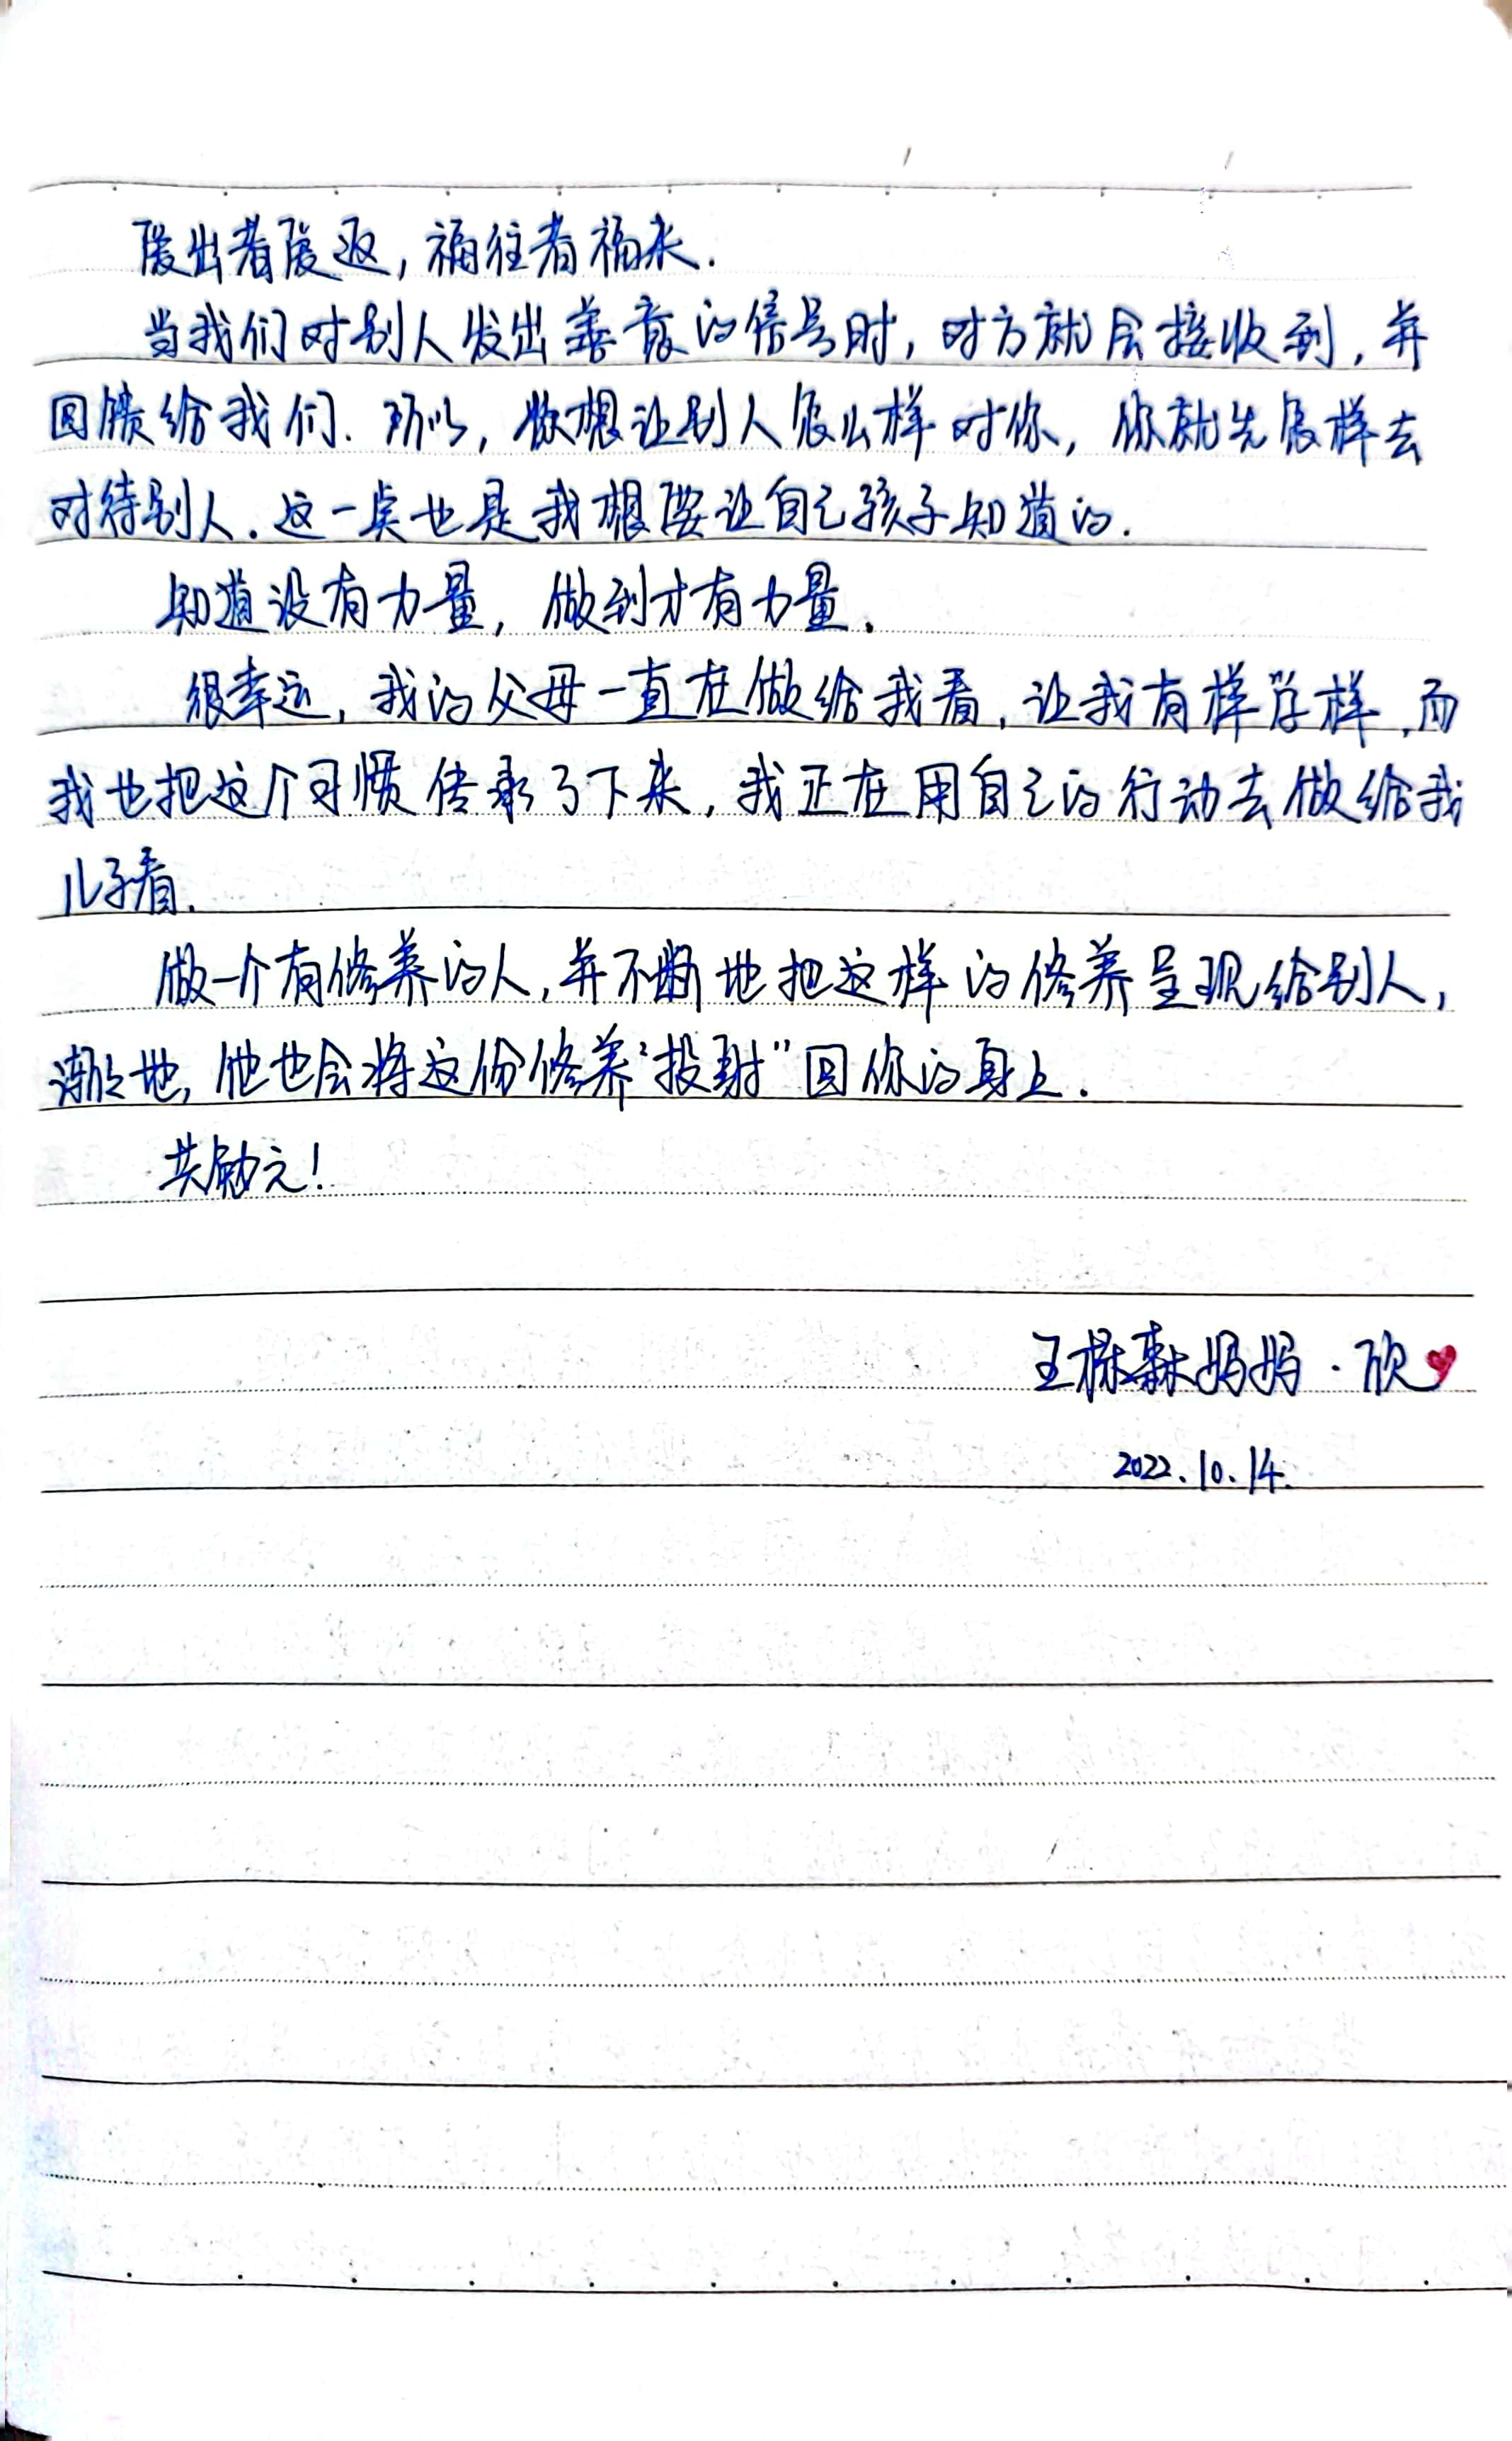 爱出者爱返,福往者福来.
当我们对别人发出善意的信号时,对方就会接收到,并
回馈给我们.所以,你想让别人怎么样对你,你就先怎样去
对待别人.这一点也是我想要让自己孩子知道的.
知道没有力量,做到才有力量.
很幸运,我的父母一直在做给我看,让我有样学样,而
我也把这个习惯传承了下来,我正在用自己的行动去做给我
儿子看.
做一个有修养的人,并不断地把这样的修养呈现给别人,
渐渐地,他也会将这份修养“投射”回你的身上.
共勉之!
王栎森妈妈·欣
2022.10.14.